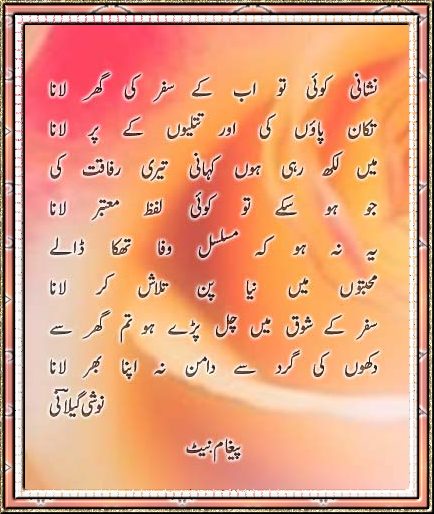 نشانی کوئی تو اب کے سفر کی گھر لانا
تکان پاؤں کی اور تتلیوں کے پر لانا
میں لکھ رہی ہوں کہانی تیری رفاقت کی
جو ہو سکے تو کوئی لفظ معتبر لانا
یہ نہ ہو کہ مسلسل وفا تھکا ڈالے
محبتوں میں نیا پن تلاش کر لانا
سفر کے شوق میں چل پڑے ہو تم گھر سے
دکھوں کی گرد سے دامن نہ اپنا بھر لانا
نوشی گیلانی
پیغام نیٹ